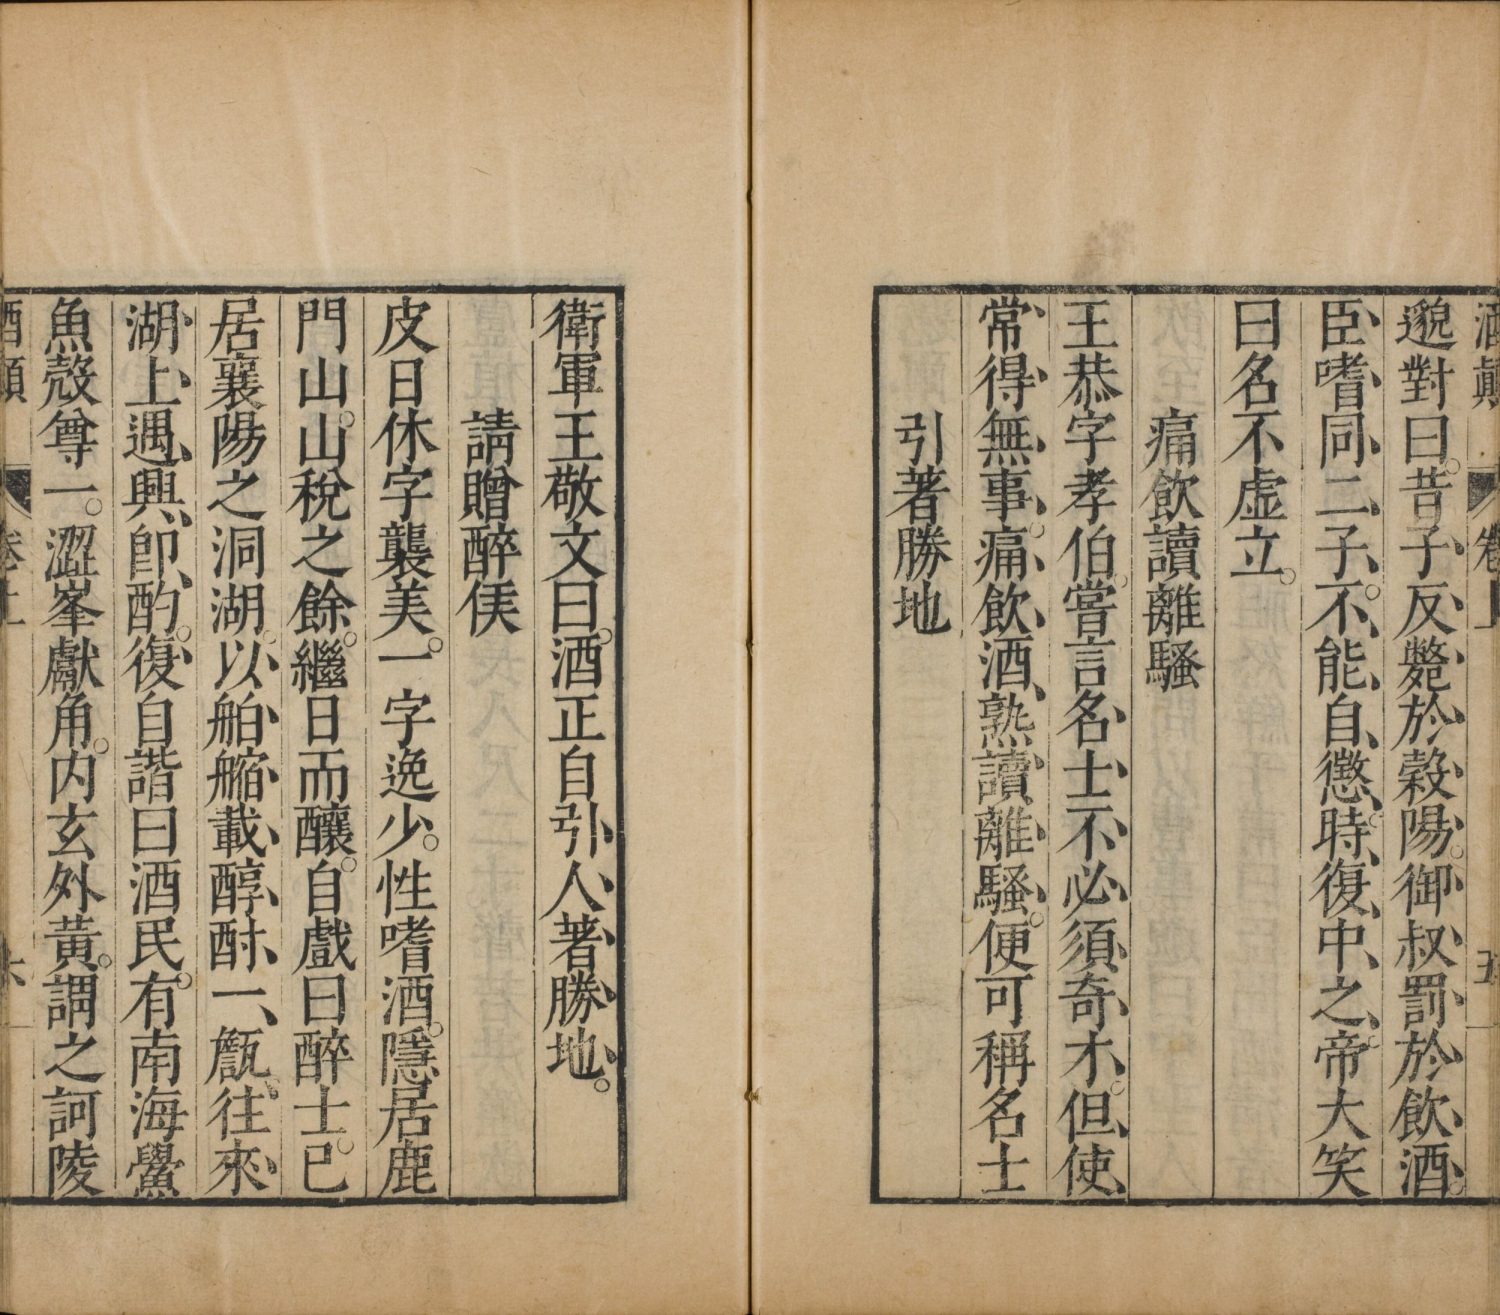 酒顛 卷上 五
邈對曰。昔子反斃於穀陽。御叔罰於飲酒。
臣嗜同二子。不能自懲。時復中之。帝大笑
曰名不虛立。
痛飲讀離騷
王恭字孝伯。嘗言名士不必須奇才。但使
常得無事。痛飲酒。熟讀離騷。便可稱名士
引著勝地
衛軍王敬文曰。酒正自引人著勝地。
請贈醉侯
皮日休字襲美。一字逸少。性嗜酒。隱居鹿
門山。山稅之餘。繼日而釀。自戲曰醉士。已
居襄陽之洞湖。以舶艒載醇酎一甔。往來
湖上。遇興即酌。復自諧曰酒民。有南海鱟
魚殼尊一。澀峯齾角。內玄外黃。謂之訶陵
酒顛 卷上 六